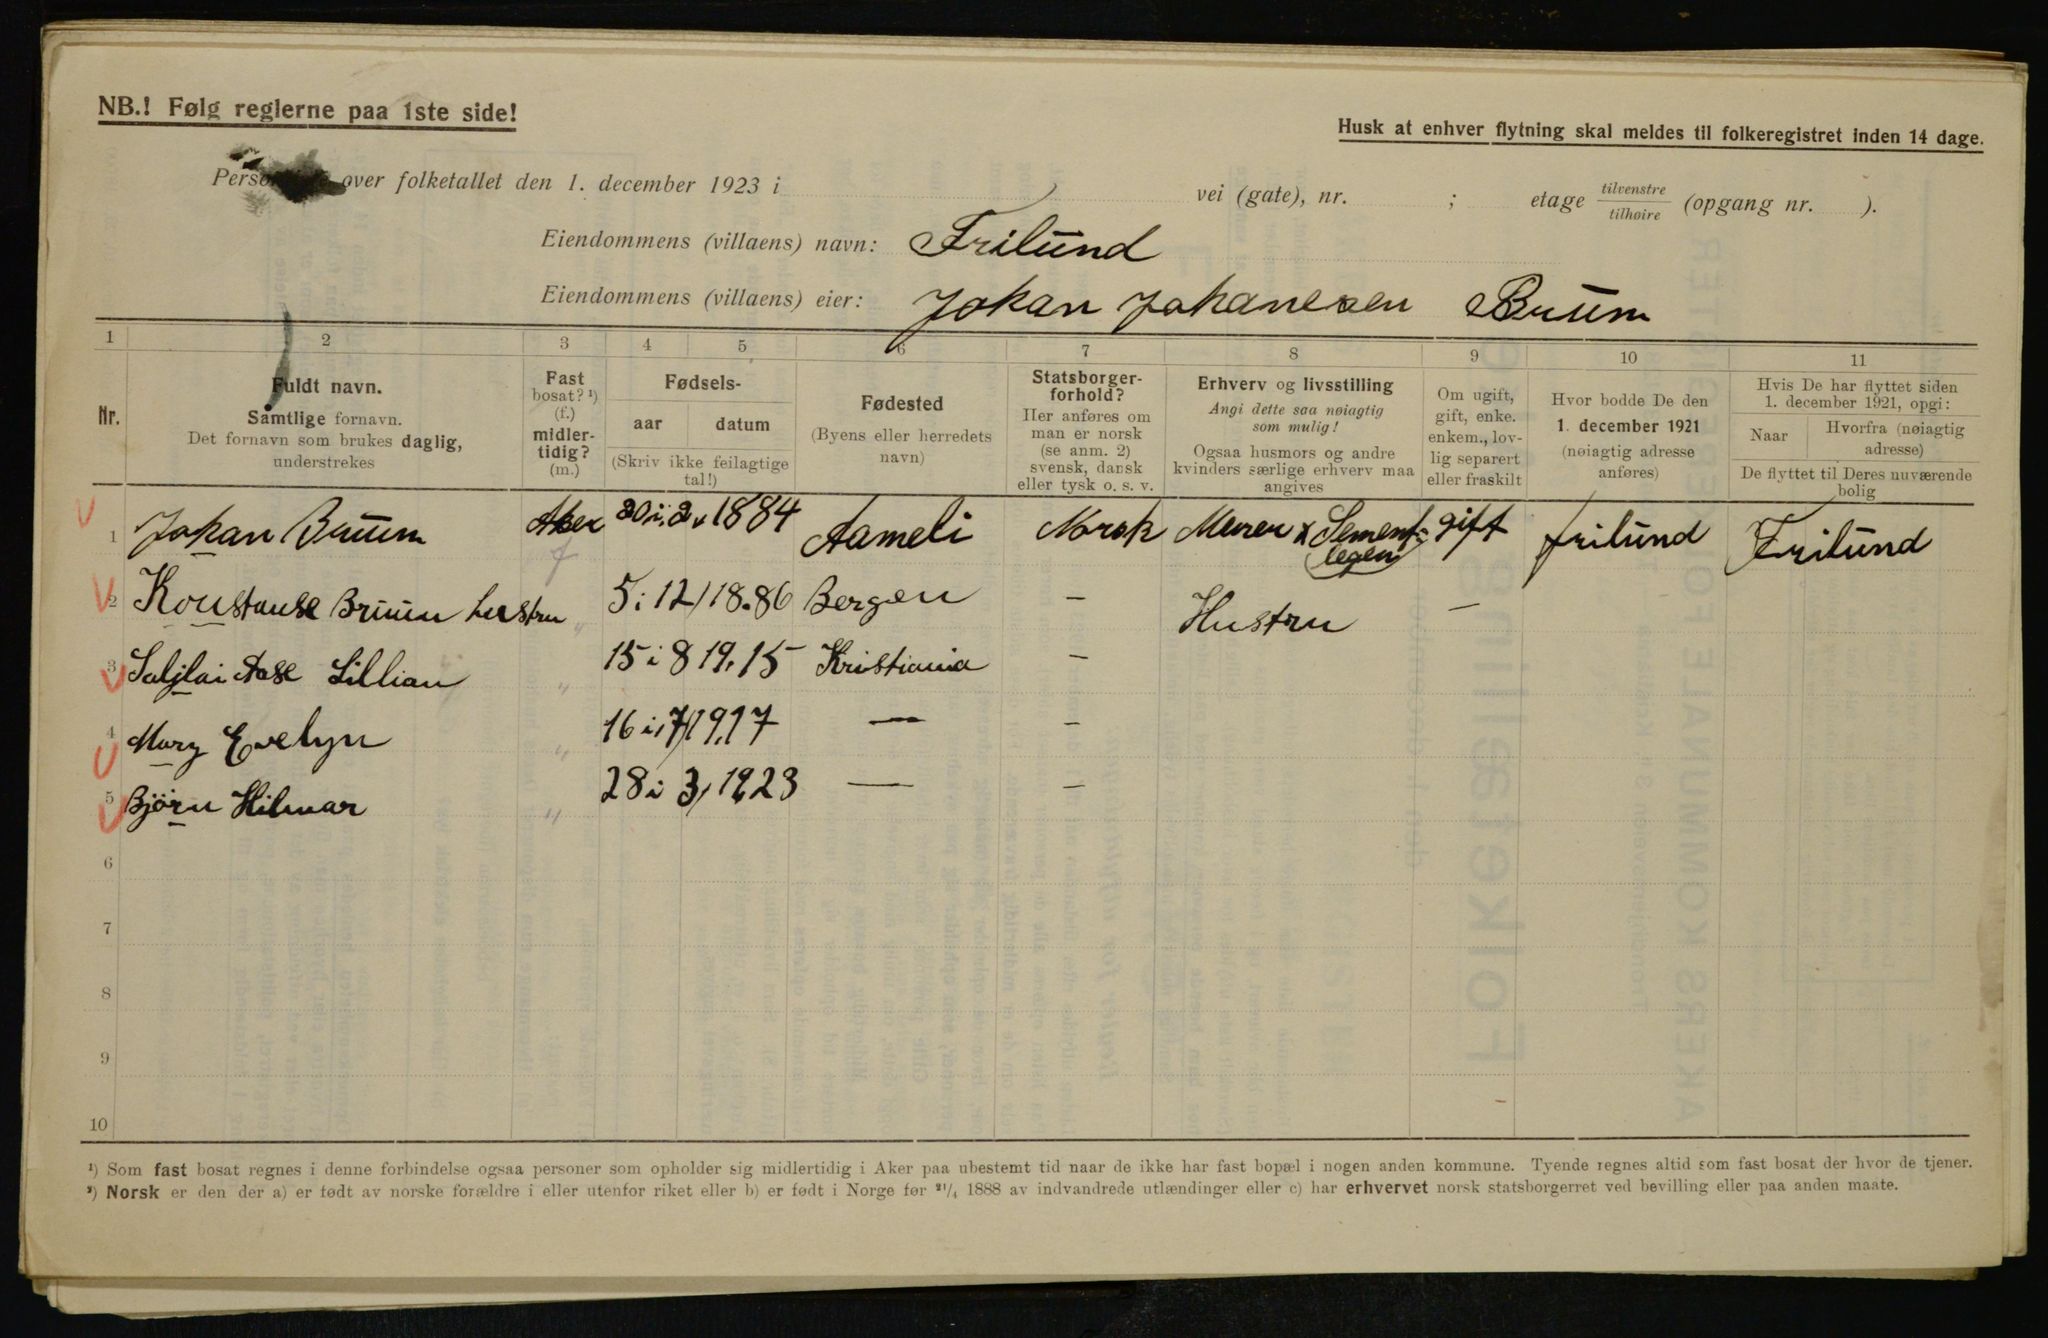 NB.! Følg reglerne paa 1ste side!
Husk at enhver flytning skal meldes til folkeregistret inden 14 dage.
over folketallet den 1. december 1923 i vei (gate), nr. ; etage tilvenstre / tilhøire (opgang nr. ).
Eiendommens (villaens) navn: Frilund
Eiendommens (villaens) eier: Johan Johanesen Bruum
1 2 3 4 5 6 7 8 9 10 11
Nr.
Fuldt navn.
Samtlige fornavn.
Det fornavn som brukes daglig,
understrekes
Fast
bosat? ¹)
(f.)
midler-
tidig?
(m.)
Fødsels-
aar datum
(Skriv ikke feilagtige
tal!)
Fødested
(Byens eller herredets
navn)
Statsborger-
forhold?
Her anføres om
man er norsk
(se anm. 2)
svensk, dansk
eller tysk o. s. v.
Erhverv og livsstilling
Angi dette saa nøiagtig
som mulig!
Ogsaa husmors og andre
kvinders særlige erhverv maa
angives
Om ugift,
gift, enke.
enkem., lov-
lig separert
eller fraskilt
Hvor bodde De den
1. december 1921
(nøiagtig adresse
anføres)
Hvis De har flyttet siden
1. december 1921, opgi:
Naar Hvorfra (nøiagtig
adresse)
De flyttet til Deres nuværende
bolig
1 Johan Bruum Aker f 20 i 2 1884 Aameli Norsk Murer x Sement- gift frilund Frilund
legen
2 Konstanse Bruum hustru " 5 i 12 / 18.86 Bergen — Hustru —
3 Aase Lillian " 15 i 8 19.15 Kristiania —
4 Mary Evelyn " 16 i 7/19.17 — —
5 Björn Hilmar " 28 i 3/1923 — —
6
7
8
9
10
¹) Som fast bosat regnes i denne forbindelse ogsaa personer som opholder sig midlertidig i Aker paa ubestemt tid naar de ikke har fast bopæl i nogen anden kommune. Tyende regnes altid som fast bosat der hvor de tjener.
²) Norsk er den der a) er født av norske forældre i eller utenfor riket eller b) er født i Norge før ²¹/₄ 1888 av indvandrede utlændinger eller c) har erhvervet norsk statsborgerret ved bevilling eller paa anden maate.